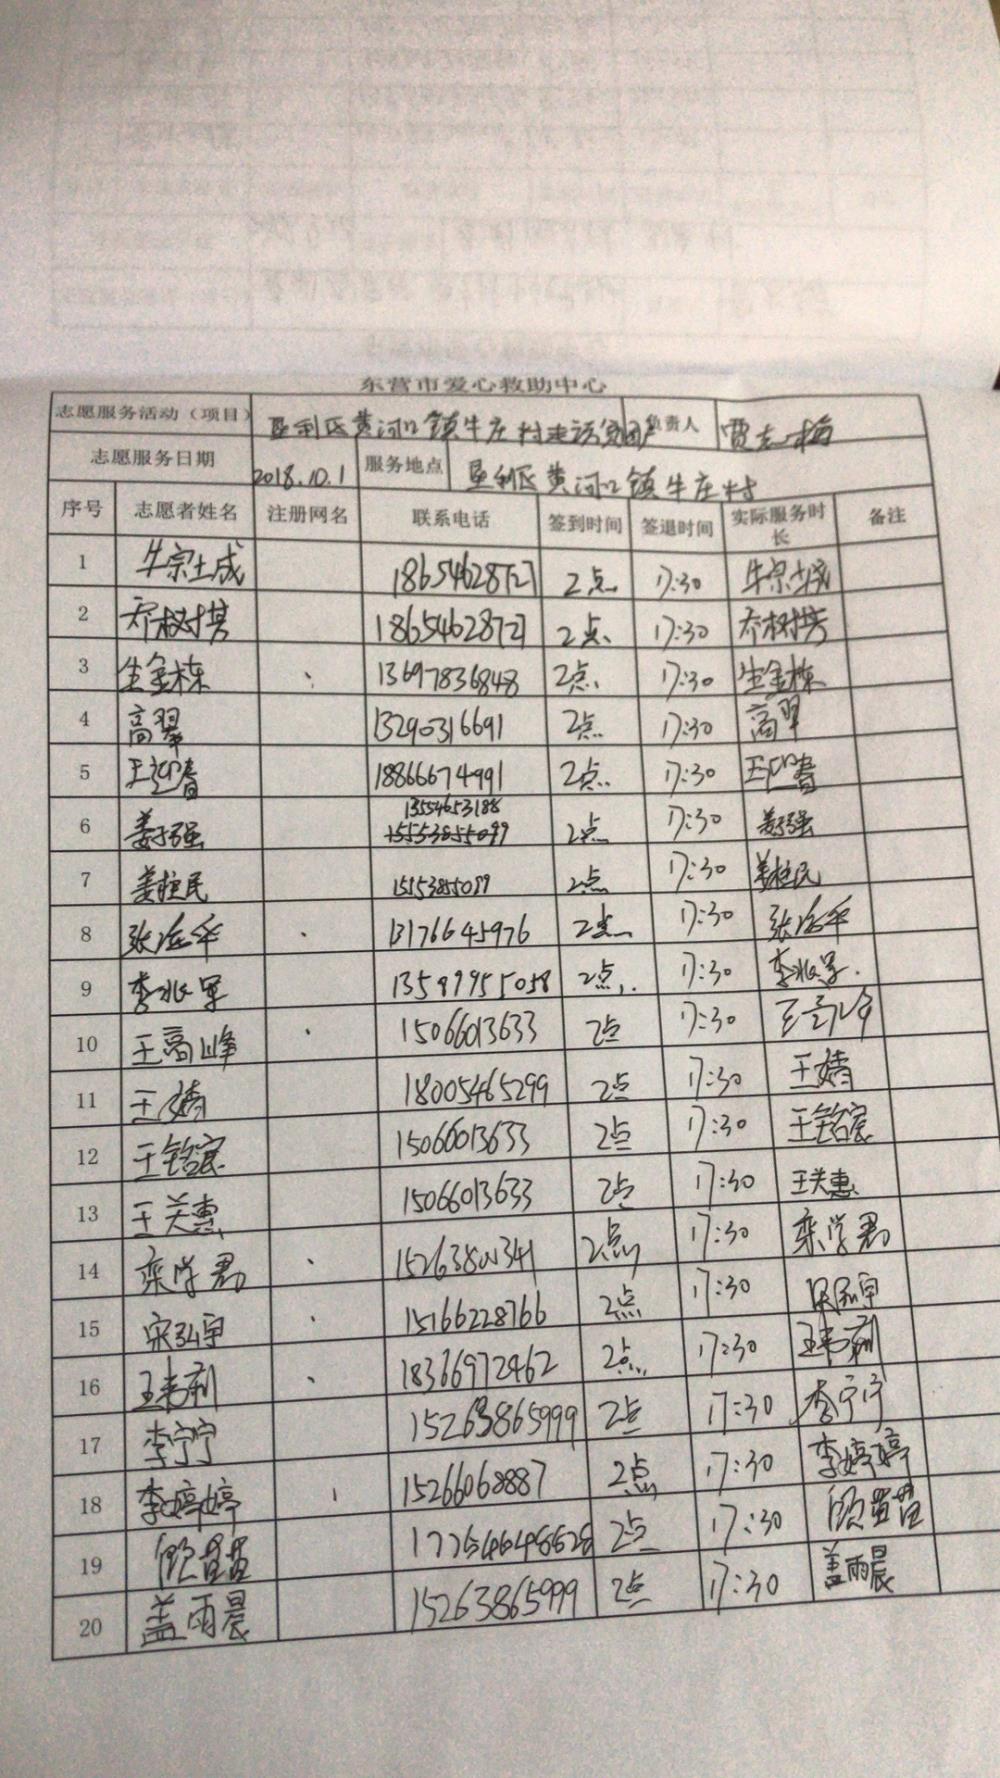 东营市爱心救助中心
志愿服务活动（项目） 垦利区黄河口镇牛庄村走访贫困户 负责人 贾志梅
志愿服务日期 2018.10.1 服务地点 垦利区黄河口镇牛庄村
序号 志愿者姓名 注册网名 联系电话 签到时间 签退时间 实际服务时长 备注
1 牛宗士成 18654628727 2点 17:30 牛宗士成
2 乔树芸 18654628727 2点 17:30 乔树芸
3 生金栋 13697836848 2点 17:30 生金栋
4 高翠 13290316691 2点 17:30 高翠
5 王迎春 18866674991 2点 17:30 王迎春
6 姜强 13554653188 2点 17:30 姜强
7 姜桂民 15153855099 2点 17:30 姜桂民
8 张华 13176645976 2点 17:30 张华
9 李兆军 13589955058 2点 17:30 李兆军
10 王高峰 15066013633 2点 17:30 王高峰
11 王婧 18005465299 2点 17:30 王婧
12 王铭宸 15066013633 2点 17:30 王铭宸
13 王关惠 15066013633 2点 17:30 王关惠
14 栾学君 15263801341 2点 17:30 栾学君
15 宋弘宇 15166228766 2点 17:30 宋弘宇
16 王莉 18366972462 2点 17:30 王莉
17 李宁宁 15263865999 2点 17:30 李宁宁
18 李婷婷 15266068887 2点 17:30 李婷婷
19 颜苗苗 17754648628 2点 17:30 颜苗苗
20 盖雨晨 15263865999 2点 17:30 盖雨晨